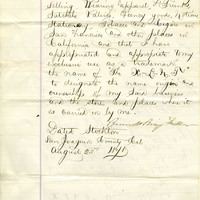 selling Wearing apparel, Trunks
Satchels Valises, Fancy goods, Notions
Stationery, Tobacco and Cigars in
San Francisco and other places in
California and that I have
appropriated and appropriate to my
exclusive use as a trademark
the name of The
to designate the name origin and
ownership of my said business
and the store and places where it
is carried on by me.
Dated Stockton
San Joaquin County Cal
August